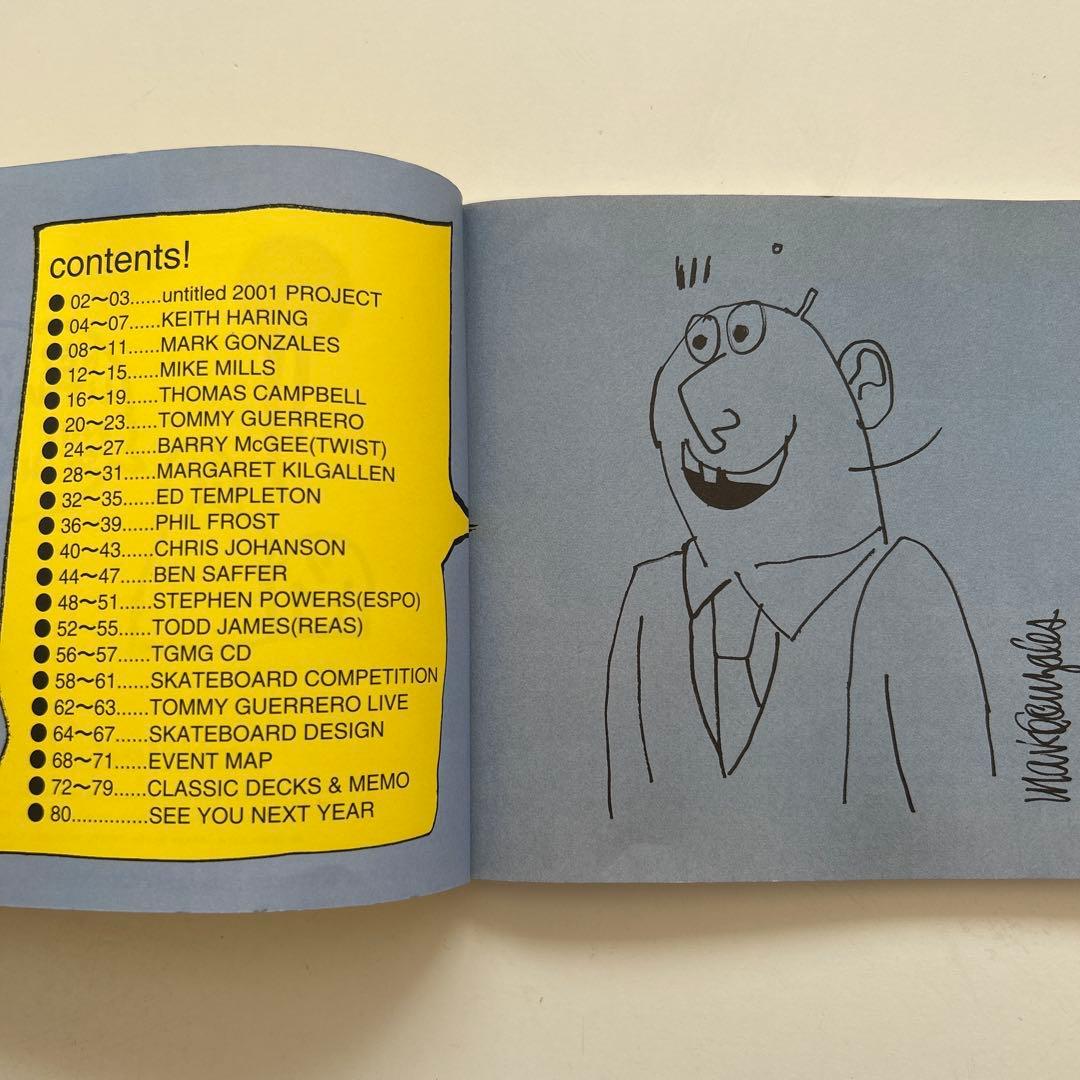 contents!
● 02〜03......untitled 2001 PROJECT
● 04〜07......KEITH HARING
● 08〜11......MARK GONZALES
● 12〜15......MIKE MILLS
● 16〜19......THOMAS CAMPBELL
● 20〜23......TOMMY GUERRERO
● 24〜27......BARRY McGEE(TWIST)
● 28〜31......MARGARET KILGALLEN
● 32〜35......ED TEMPLETON
● 36〜39......PHIL FROST
● 40〜43......CHRIS JOHANSON
● 44〜47......BEN SAFFER
● 48〜51......STEPHEN POWERS(ESPO)
● 52〜55......TODD JAMES(REAS)
● 56〜57......TGMG CD
● 58〜61......SKATEBOARD COMPETITION
● 62〜63......TOMMY GUERRERO LIVE
● 64〜67......SKATEBOARD DESIGN
● 68〜71......EVENT MAP
● 72〜79......CLASSIC DECKS & MEMO
● 80..............SEE YOU NEXT YEAR
mark gonzales